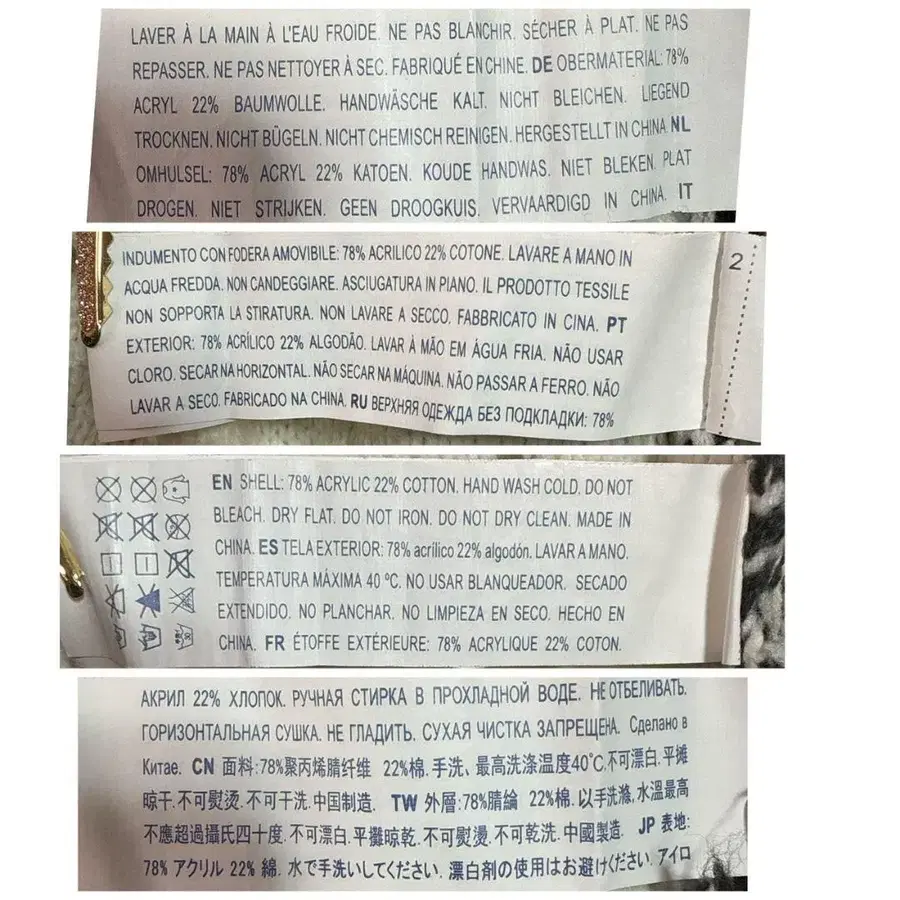 LAVER À LA MAIN À L'EAU FROIDE. NE PAS BLANCHIR. SÉCHER À PLAT. NE PAS
REPASSER. NE PAS NETTOYER À SEC. FABRIQUÉ EN CHINE. DE OBERMATERIAL: 78%
ACRYL 22% BAUMWOLLE. HANDWÄSCHE KALT. NICHT BLEICHEN. LIEGEND
TROCKNEN. NICHT BÜGELN. NICHT CHEMISCH REINIGEN. HERGESTELLT IN CHINA. NL
OMHULSEL: 78% ACRYL 22% KATOEN. KOUDE HANDWAS. NIET BLEKEN. PLAT
DROGEN. NIET STRIJKEN. GEEN DROOGKUIS. VERVAARDIGD IN CHINA. IT
INDUMENTO CON FODERA AMOVIBILE: 78% ACRILICO 22% COTONE. LAVARE A MANO IN
ACQUA FREDDA. NON CANDEGGIARE. ASCIUGATURA IN PIANO. IL PRODOTTO TESSILE
NON SOPPORTA LA STIRATURA. NON LAVARE A SECCO. FABBRICATO IN CINA. PT
EXTERIOR: 78% ACRÍLICO 22% ALGODÃO. LAVAR À MÃO EM ÁGUA FRIA. NÃO USAR
CLORO. SECAR NA HORIZONTAL. NÃO SECAR NA MÁQUINA. NÃO PASSAR A FERRO. NÃO
LAVAR A SECO. FABRICADO NA CHINA. RU ВЕРХНЯЯ ОДЕЖДА БЕЗ ПОДКЛАДКИ: 78%
2
EN SHELL: 78% ACRYLIC 22% COTTON. HAND WASH COLD. DO NOT
BLEACH. DRY FLAT. DO NOT IRON. DO NOT DRY CLEAN. MADE IN
CHINA. ES TELA EXTERIOR: 78% acrílico 22% algodón. LAVAR A MANO.
TEMPERATURA MÁXIMA 40 ºC. NO USAR BLANQUEADOR. SECADO
EXTENDIDO. NO PLANCHAR. NO LIMPIEZA EN SECO. HECHO EN
CHINA. FR ÉTOFFE EXTÉRIEURE: 78% ACRYLIQUE 22% COTON.
АКРИЛ 22% ХЛОПОК. РУЧНАЯ СТИРКА В ПРОХЛАДНОЙ ВОДЕ. НЕ ОТБЕЛИВАТЬ.
ГОРИЗОНТАЛЬНАЯ СУШКА. НЕ ГЛАДИТЬ. СУХАЯ ЧИСТКА ЗАПРЕЩЕНА. Сделано в
Китае. CN 面料:78%聚丙烯腈纤维 22%棉.手洗、最高洗涤温度40℃.不可漂白.平摊
晾干.不可熨烫.不可干洗.中国制造. TW 外層:78%腈綸 22%棉.以手洗滌,水溫最高
不應超過攝氏四十度.不可漂白.平攤晾乾.不可熨燙.不可乾洗.中國製造. JP 表地:
78% アクリル 22% 綿. 水で手洗いしてください. 漂白剤の使用はお避けください. アイロ